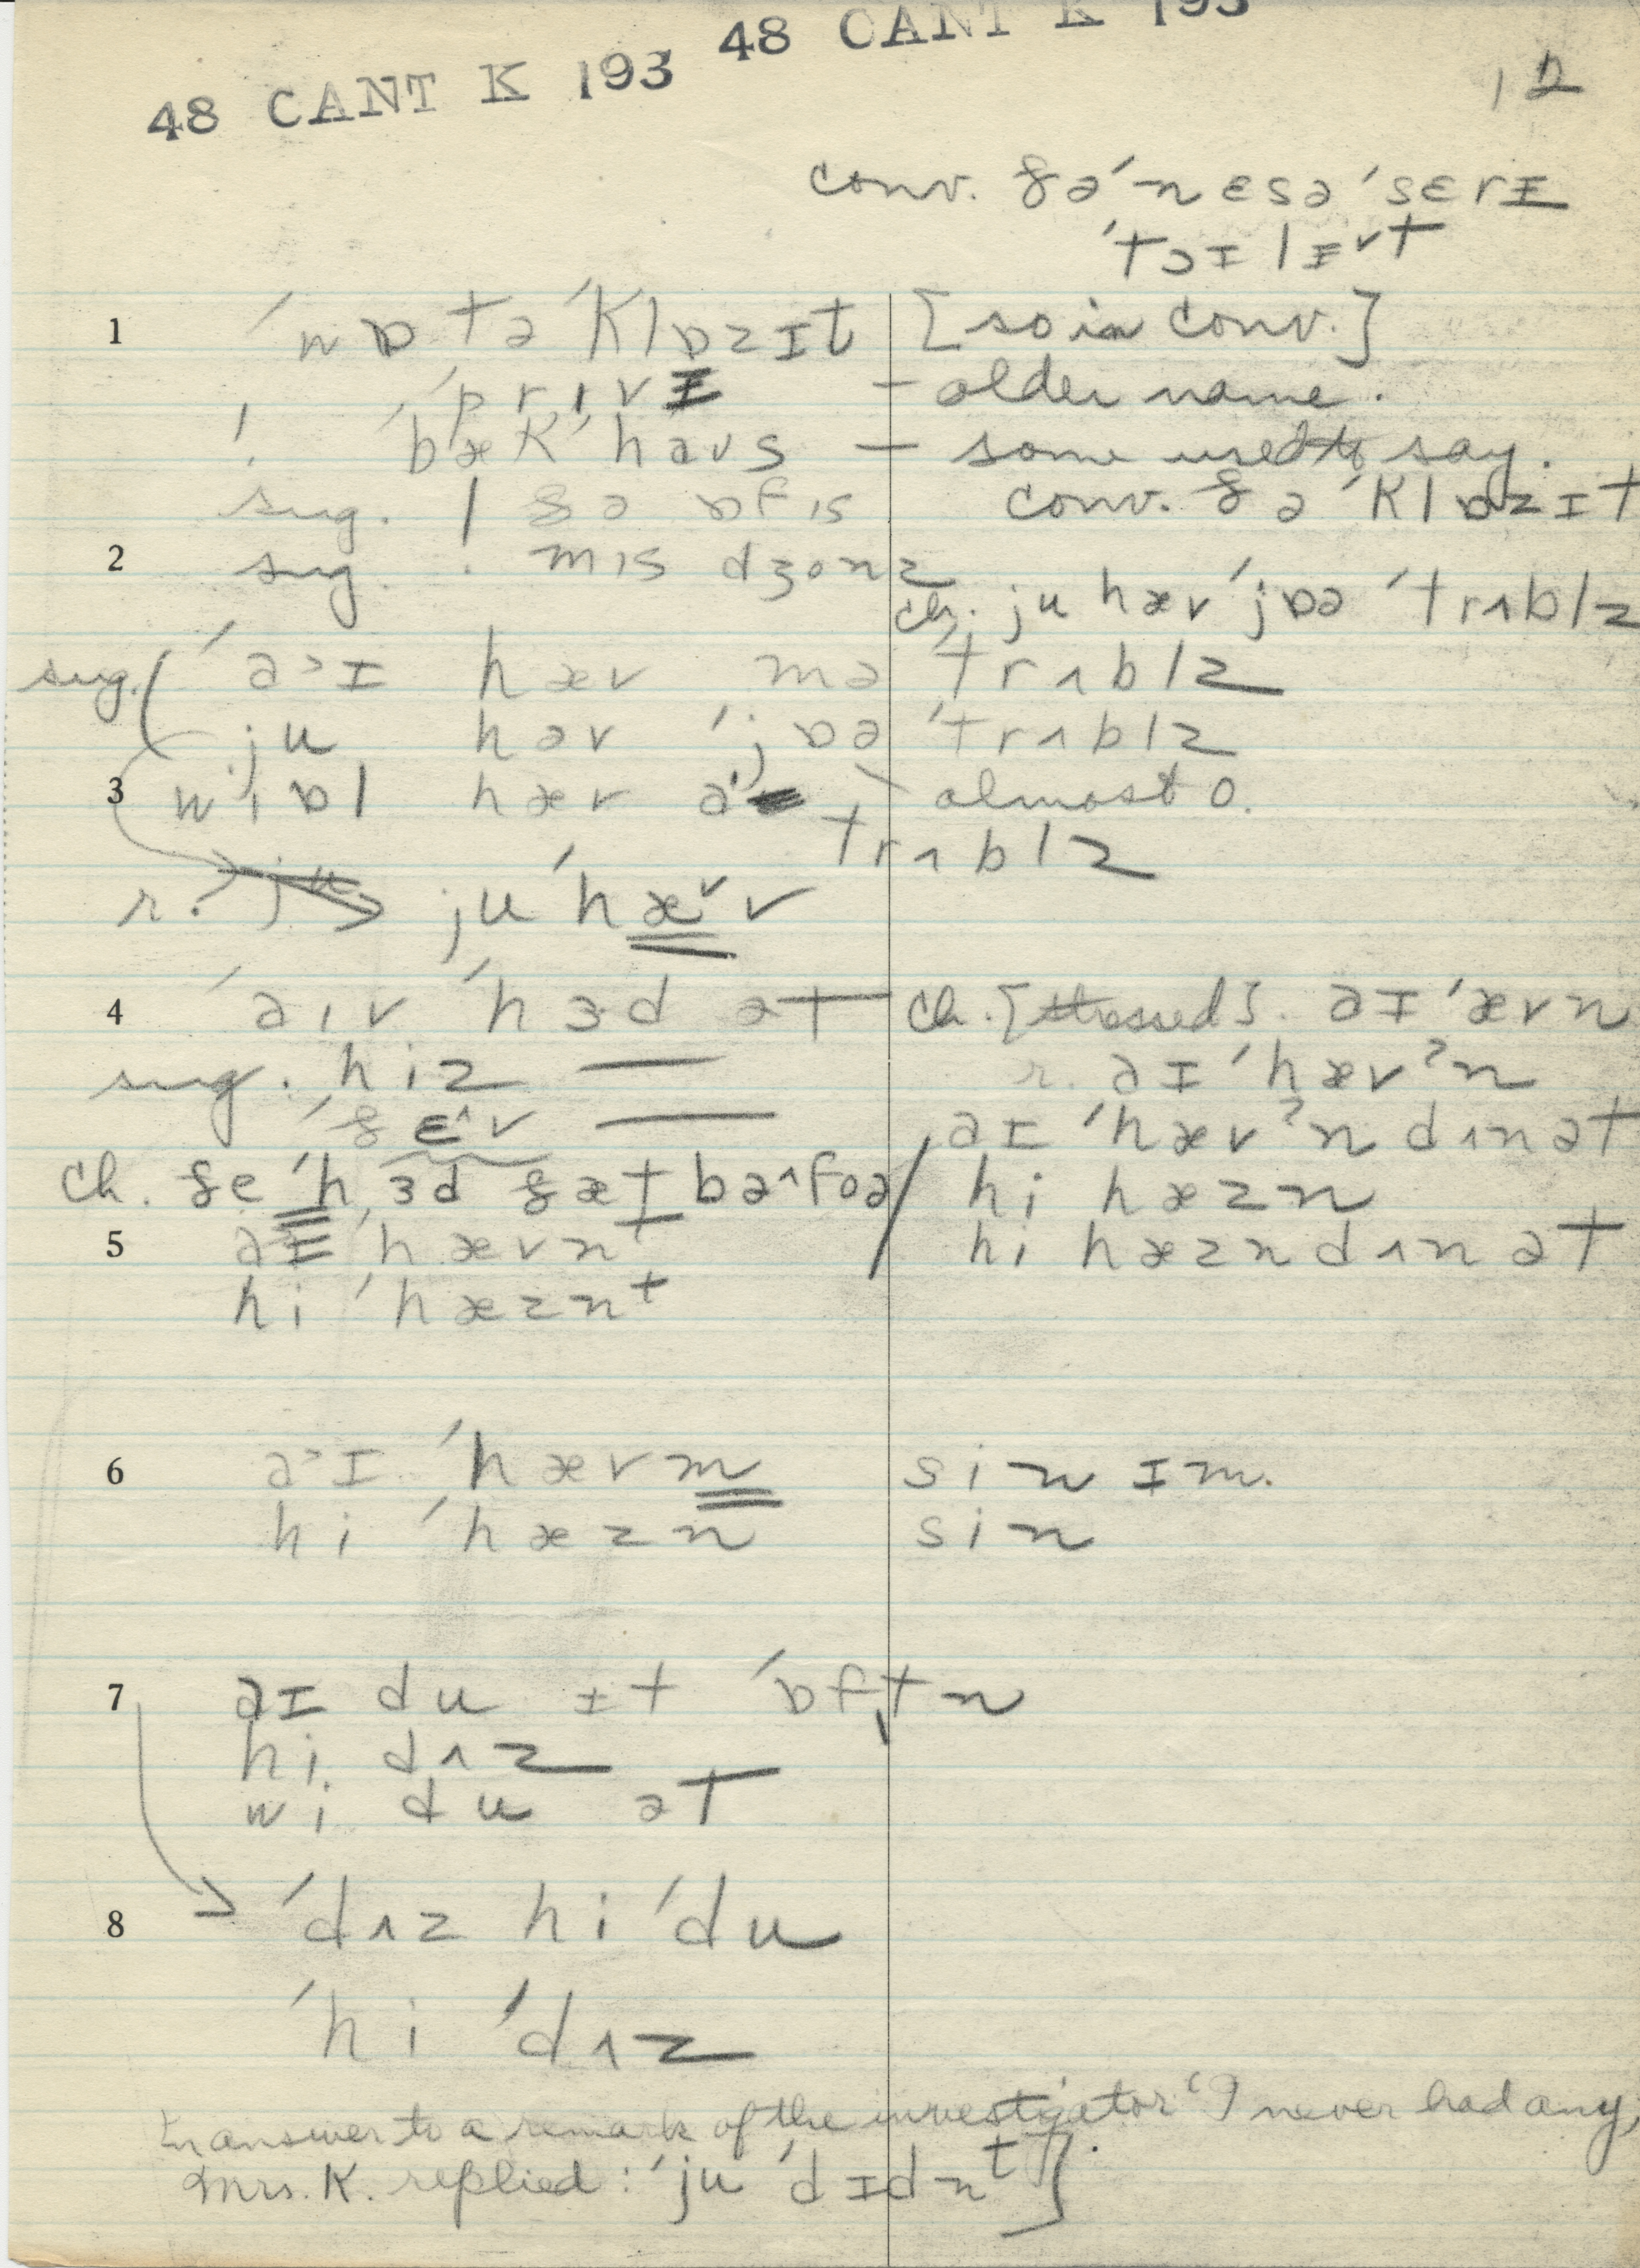 48 CANT K 193 48 CANT K 193
12
conv. ðə ˈnɛsəˈsɛrɪ
ˈtɔɪlɪ˅t
1 ˈwɒtəˈklɒzɪt [so in conv.]
ˈprɪvɪ – older name.
! ˈbæk ˈhaʊs – some used to say.
sug. | ðə ɒfɪs conv. ðə ˈklɒzɪt
2 sug. ! mɪs dʒonz
ch. ju hæv ˈjɒə ˈtrʌblz
sug. ( ˈa˃ɪ hæv mə ˈtrʌblz
ju həv ˈjɒə ˈtrʌblz
3 wi ɒl hæv a – almost o.
trʌblz
r. ju ˈhæ˅v
4 ˈaɪv ˈhɜd ət ch. [stressed]. aɪ ˈævn
sug. hiz — r. aɪ ˈhævˀn
ˈðɛ˄v — aɪ ˈhævˀn dʌn ət
ch. ðe ˈhɜd ðæt bə˄foə / hi hæzn
5 aɪ ˈhævnt hi hæzn dʌn ət
hi ˈhæznt
6 a˃ɪ ˈhævm sin ɪm.
hi ˈhæzn sin
7 aɪ du ɪt ˈɒftn
hi dʌz
wi du ət
8 ˈdʌz hi ˈdu
ˈhi ˈdʌz
In answer to a remark of the investigator 'I never had any,'
Mrs. K. replied: ˈju ˈdɪdnt].